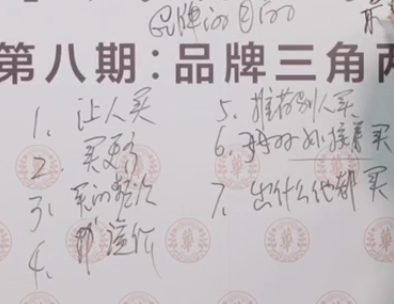 品牌的目的
第八期：品牌三角两
1、让人买
2、买更多
3、买的频次
4、溢价
5、推荐别人买
6、接着买
7、出什么他都买